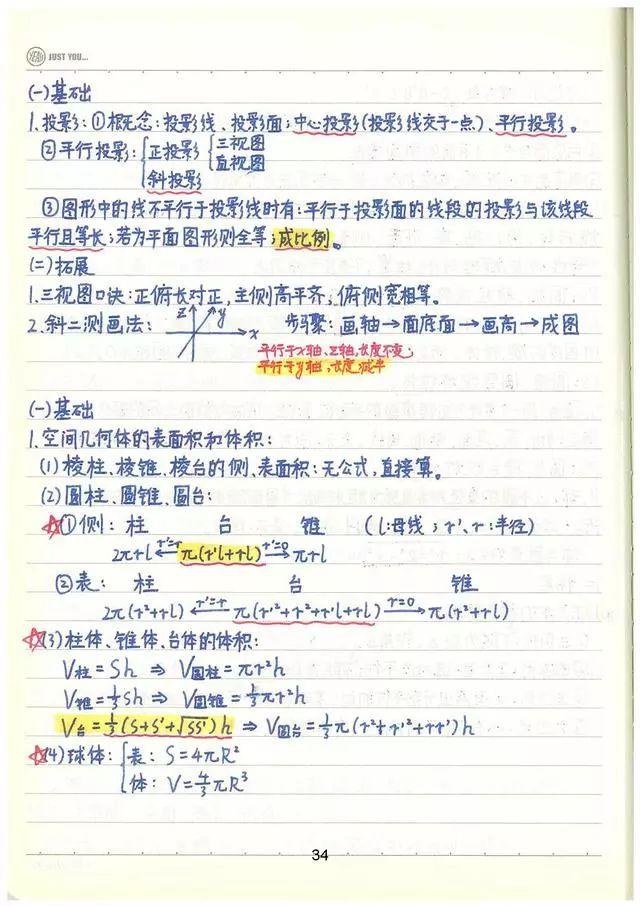 JUST YOU...
(一)基础
1.投影:①概念:投影线、投影面;中心投影(投影线交于一点)、平行投影。
②平行投影:{正投影{三视图
直视图
斜投影
③图形中的线不平行于投影线时有:平行于投影面的线段的投影与该线段
平行且等长;若为平面图形则全等;成比例。
(二)拓展
1.三视图口诀:正俯长对正,主侧高平齐,俯侧宽相等。
2.斜二测画法: z y x 步骤:画轴→画底面→画高→成图
平行于x轴、z轴,长度不变;
平行于y轴,长度减半
(一)基础
1.空间几何体的表面积和体积:
(1)棱柱、棱锥、棱台的侧、表面积:无公式,直接算。
(2)圆柱、圆锥、圆台:
☆①侧: 柱 台 锥 (l:母线;r'、r:半径)
2πrl ←r'=r π(r'l+rl) r'=0→ πrl
②表: 柱 台 锥
2π(r²+rl) ←r'=r π(r'²+r²+r'l+rl) r=0→ π(r²+rl)
☆(3)柱体、锥体、台体的体积:
V柱=Sh ⇒ V圆柱=πr²h
V锥=1/3Sh ⇒ V圆锥=1/3πr²h
V台=1/3(S+S'+√SS')h ⇒ V圆台=1/3π(r²+r'²+rr')h
☆(4)球体:{表:S=4πR²
体:V=4/3πR³
34